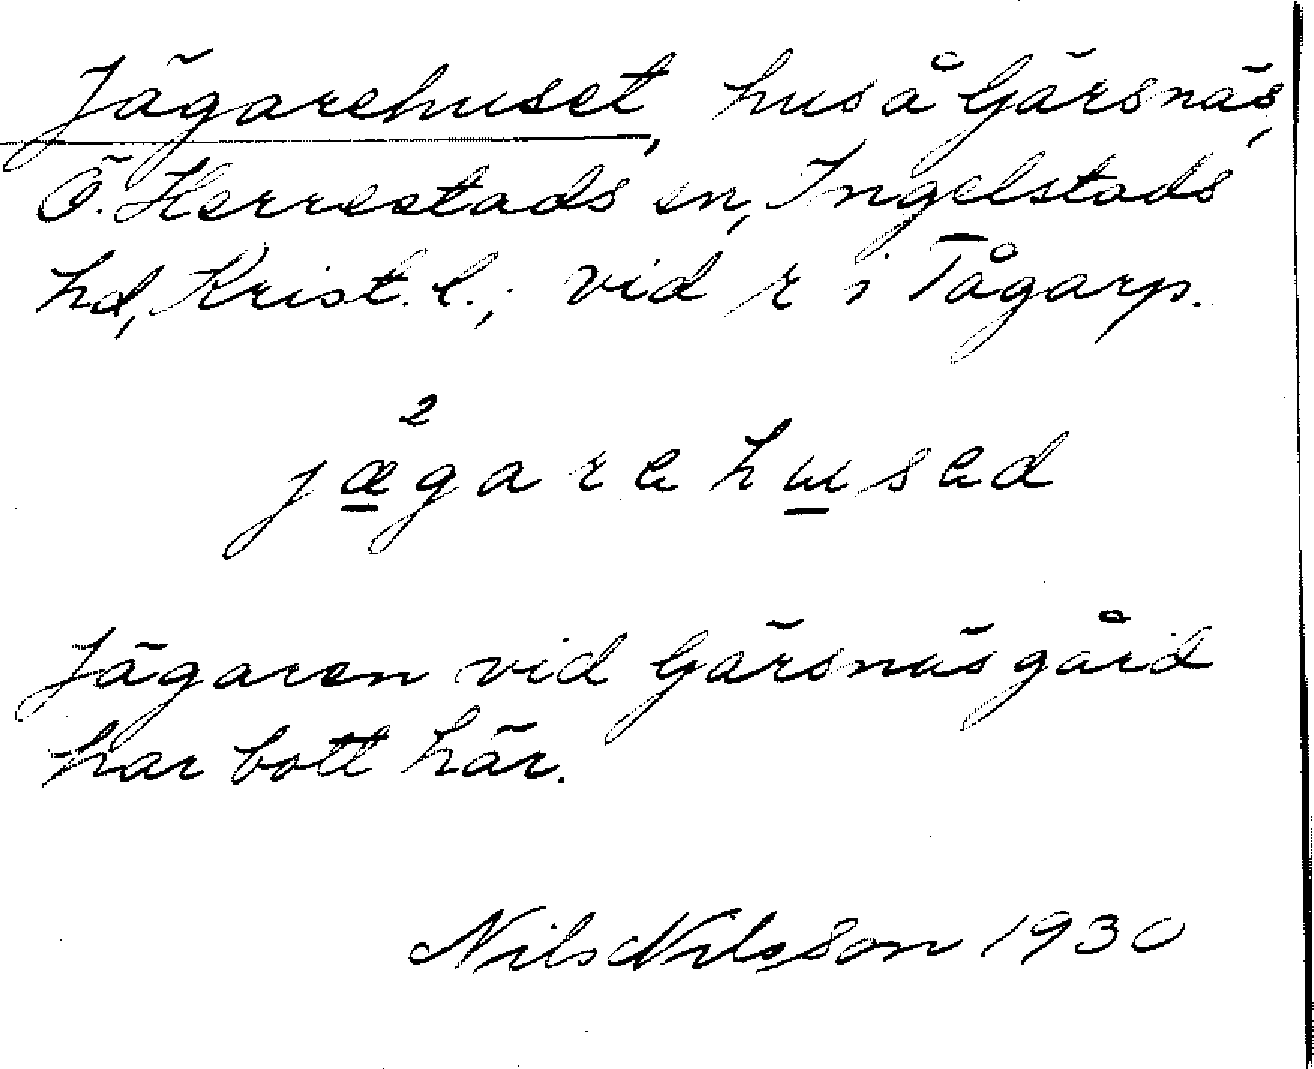 Jägarehuset, hus å Gärsnäs,
Ö. Herrestads sn, Ingelstads
hd, Krist. l.; vid r i Tågarp.
2
jægarehusad
Jägaren vid Gärsnäs gård
har bott här.
Nils Nilsson 1930